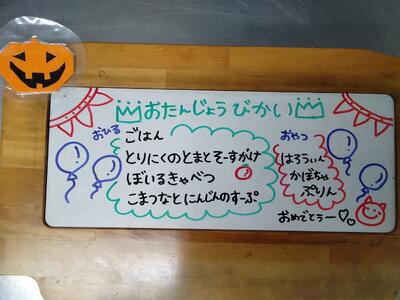 おたんじょうびかい
おひる
ごはん
とりにくのとまとそーすがけ
ぼいるきゃべつ
こまつなとにんじんのすーぷ
おやつ
はろうぃん
かぼちゃ
ぷりん
おめでとう〜♡♡